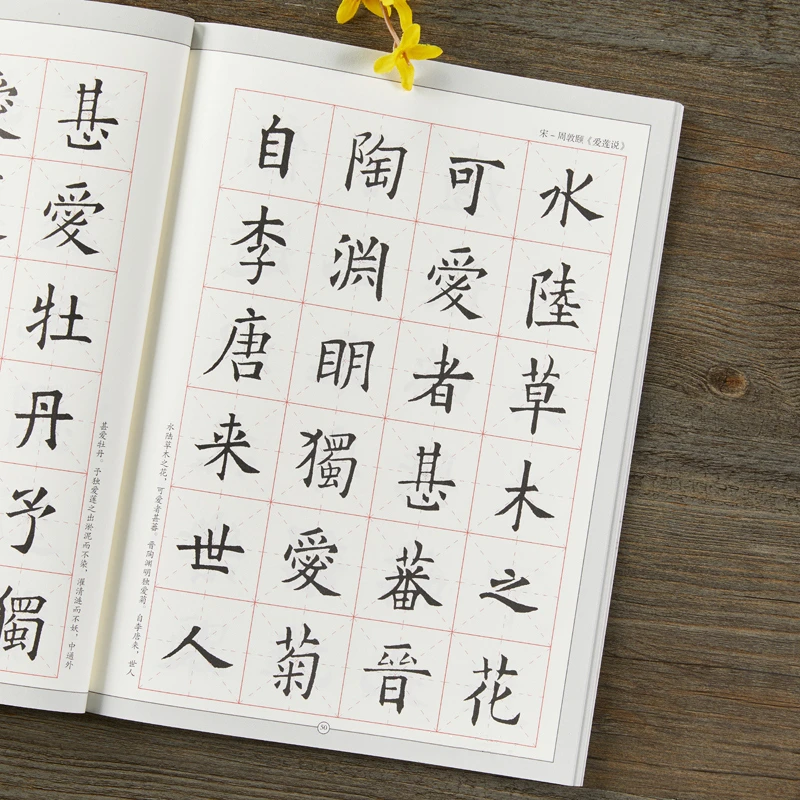 宋－周敦颐《爱莲说》
水陸草木之花
可愛者甚蕃晉
陶渊眀獨愛菊
自李唐来世人
水陆草木之花，可爱者甚蕃。晋陶渊明独爱菊。自李唐来，世人
50
甚愛牡丹予獨
甚爱牡丹。予独爱莲之出淤泥而不染，濯清涟而不妖，中通外